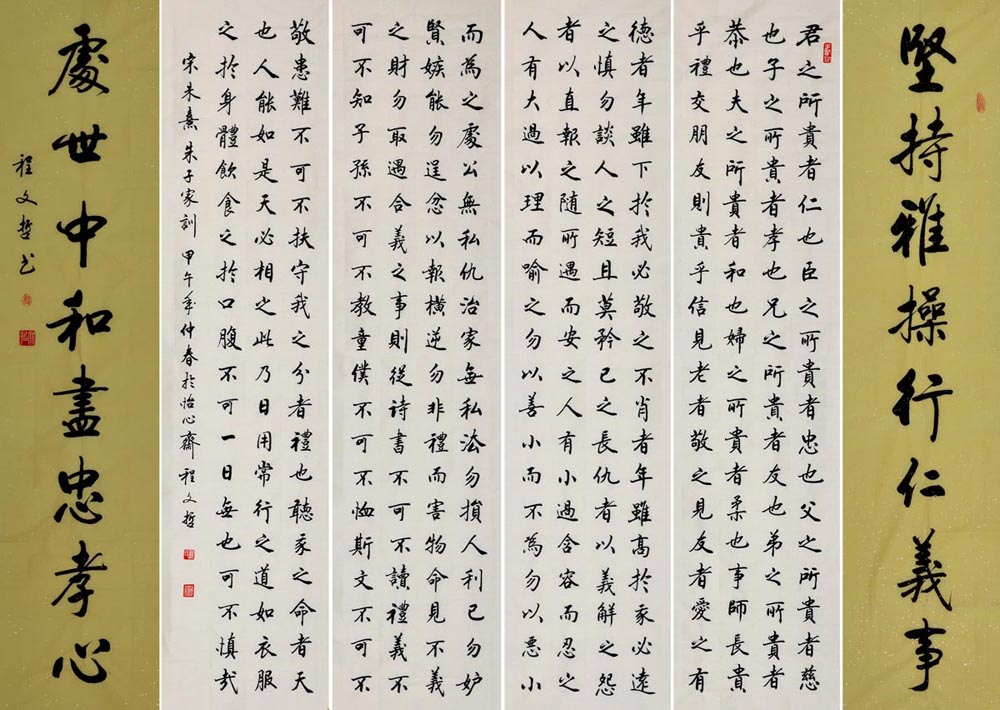 堅持雅操行仁義事
君之所貴者仁也臣之所貴者忠也父之所貴者慈
也子之所貴者孝也兄之所貴者友也弟之所貴者
恭也夫之所貴者和也婦之所貴者柔也事師長貴
乎禮交朋友則貴乎信見老者敬之見友者愛之有
德者年雖下於我必敬之不肖者年雖高於我必遠
之慎勿談人之短且莫矜己之長仇者以義解之怨
者以直報之随所遇而安之人有小過含容而忍之
人有大過以理而喻之勿以善小而不為勿以惡小
而為之處公無私仇治家無私法勿損人利己勿妒
賢嫉能勿逞忿以報橫逆勿非禮而害物命見不義
之財勿取遇合義之事則從詩書不可不讀禮義不
可不知子孫不可不教童僕不可不恤斯文不可不
敬患難不可不扶守我之分者禮也聽我之命者天
也人能如是天必相之此乃日用常行之道如衣服
之於身體飲食之於口腹不可一日無也可不慎哉
宋朱熹朱子家訓甲午年仲春於怡心齋程文哲
處世中和盡忠孝心
程文哲书